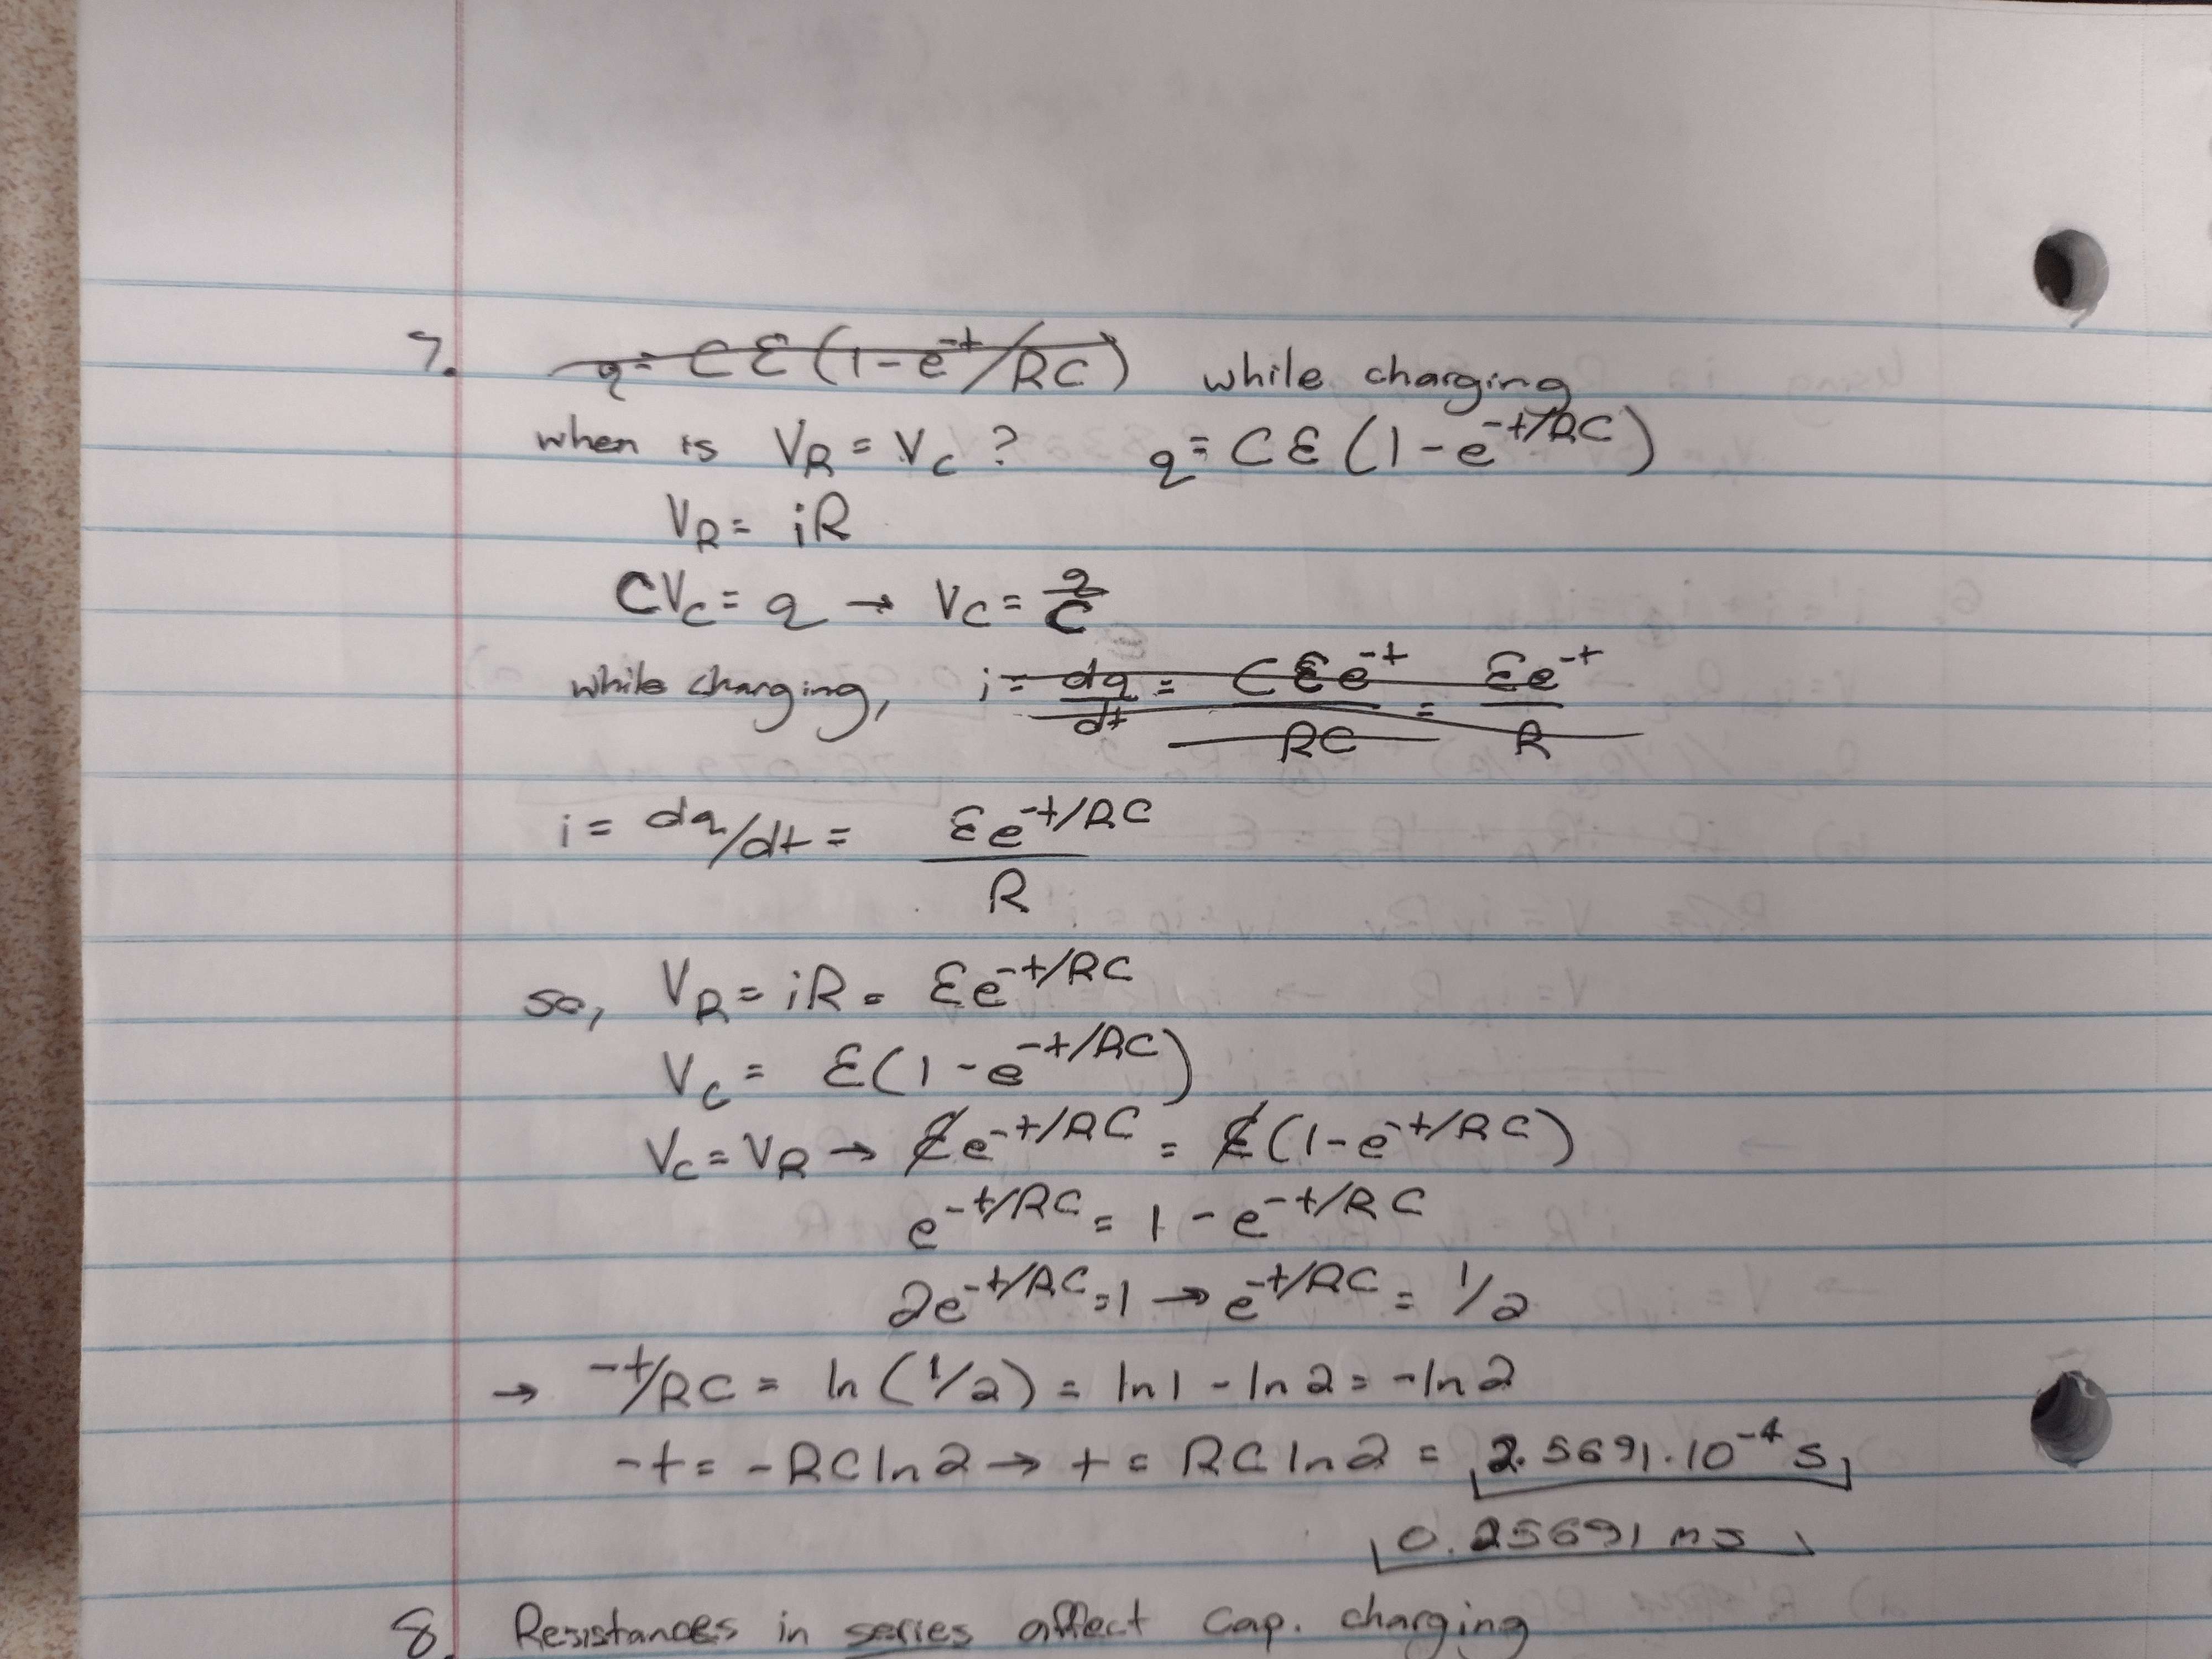 7. q = Cℰ(1-e^-t/RC) while charging
when is V_R = V_C ? q = Cℰ(1-e^-t/RC)
V_R = iR
CV_C = q → V_C = q/C
while charging, i = dq/dt = Cℰe^-t/RC = ℰe^-t/R
i = dq/dt = ℰe^-t/RC / R
so, V_R = iR = ℰe^-t/RC
V_C = ℰ(1-e^-t/RC)
V_C = V_R → ℰe^-t/RC = ℰ(1-e^-t/RC)
e^-t/RC = 1 - e^-t/RC
2e^-t/RC = 1 → e^-t/RC = 1/2
→ -t/RC = ln(1/2) = ln1 - ln2 = -ln2
-t = -RC ln2 → t = RC ln2 = 2.5691·10^-4 s
0.25691 ms
8. Resistances in series affect cap. charging